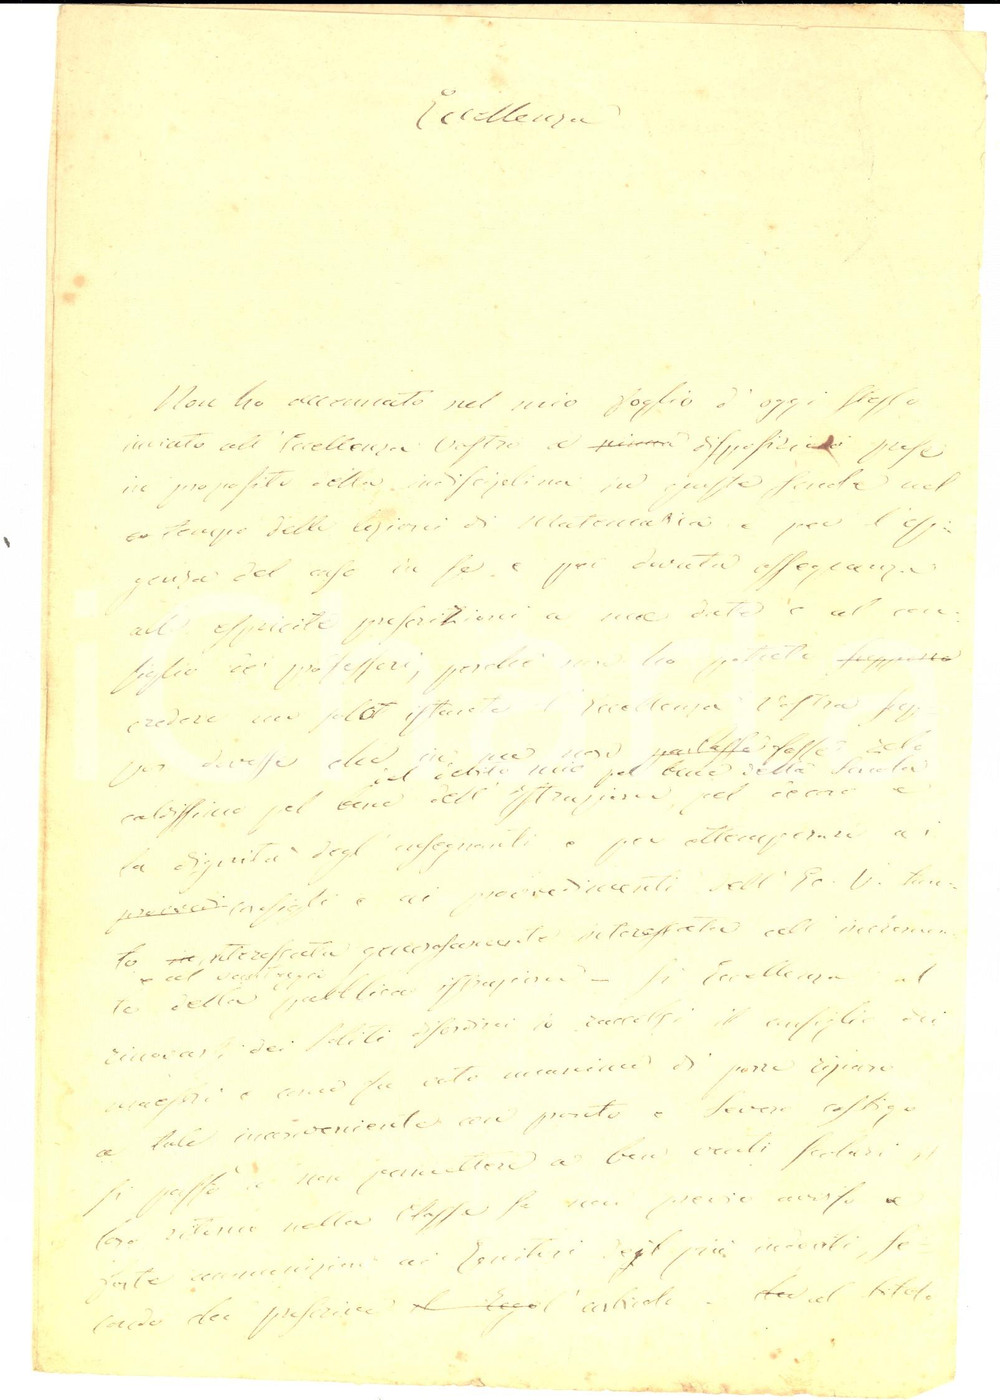 Eccellenza
Non ho accennato nel mio foglio d'oggi stesso
inviato all'Eccellenza Vostra e disposizioni prese
in proposito della indisciplina in questa Scuola nel
tempo delle lezioni di Matematica e per l'esi-
genza del caso in se, e per dovuta osseguanza
alle esplicite prescrizioni a me date e al con-
siglio dei professori, perché non ho potuto supporre
credere un solo istante l'Eccellenza Vostra sup-
por dovesse che in me non fosse zelo
del debito mio pel bene della Scuola
caldissimo pel bene dell'Istruzione, pel decoro e
la dignità degl'insegnanti e per ottemperare ai
consigli e ai provvedimenti dell'Ec. V. tan-
to interessata generosamente interessata all'incremen-
e al vantaggio
to della pubblica istruzione — Si Eccellenza al
rinnovarsi dei soliti disordini io raccolsi il consiglio dei
maestri e come fu voto unanime di porre riparo
a tale inconveniente con pronto e severo castigo
si passò a non permettere a ben venti scolari il
loro ritorno nella Classe se non previo avviso e
forte ammonizione ai Genitori degli più indocili, se-
condo che prescrive l'articolo al titolo